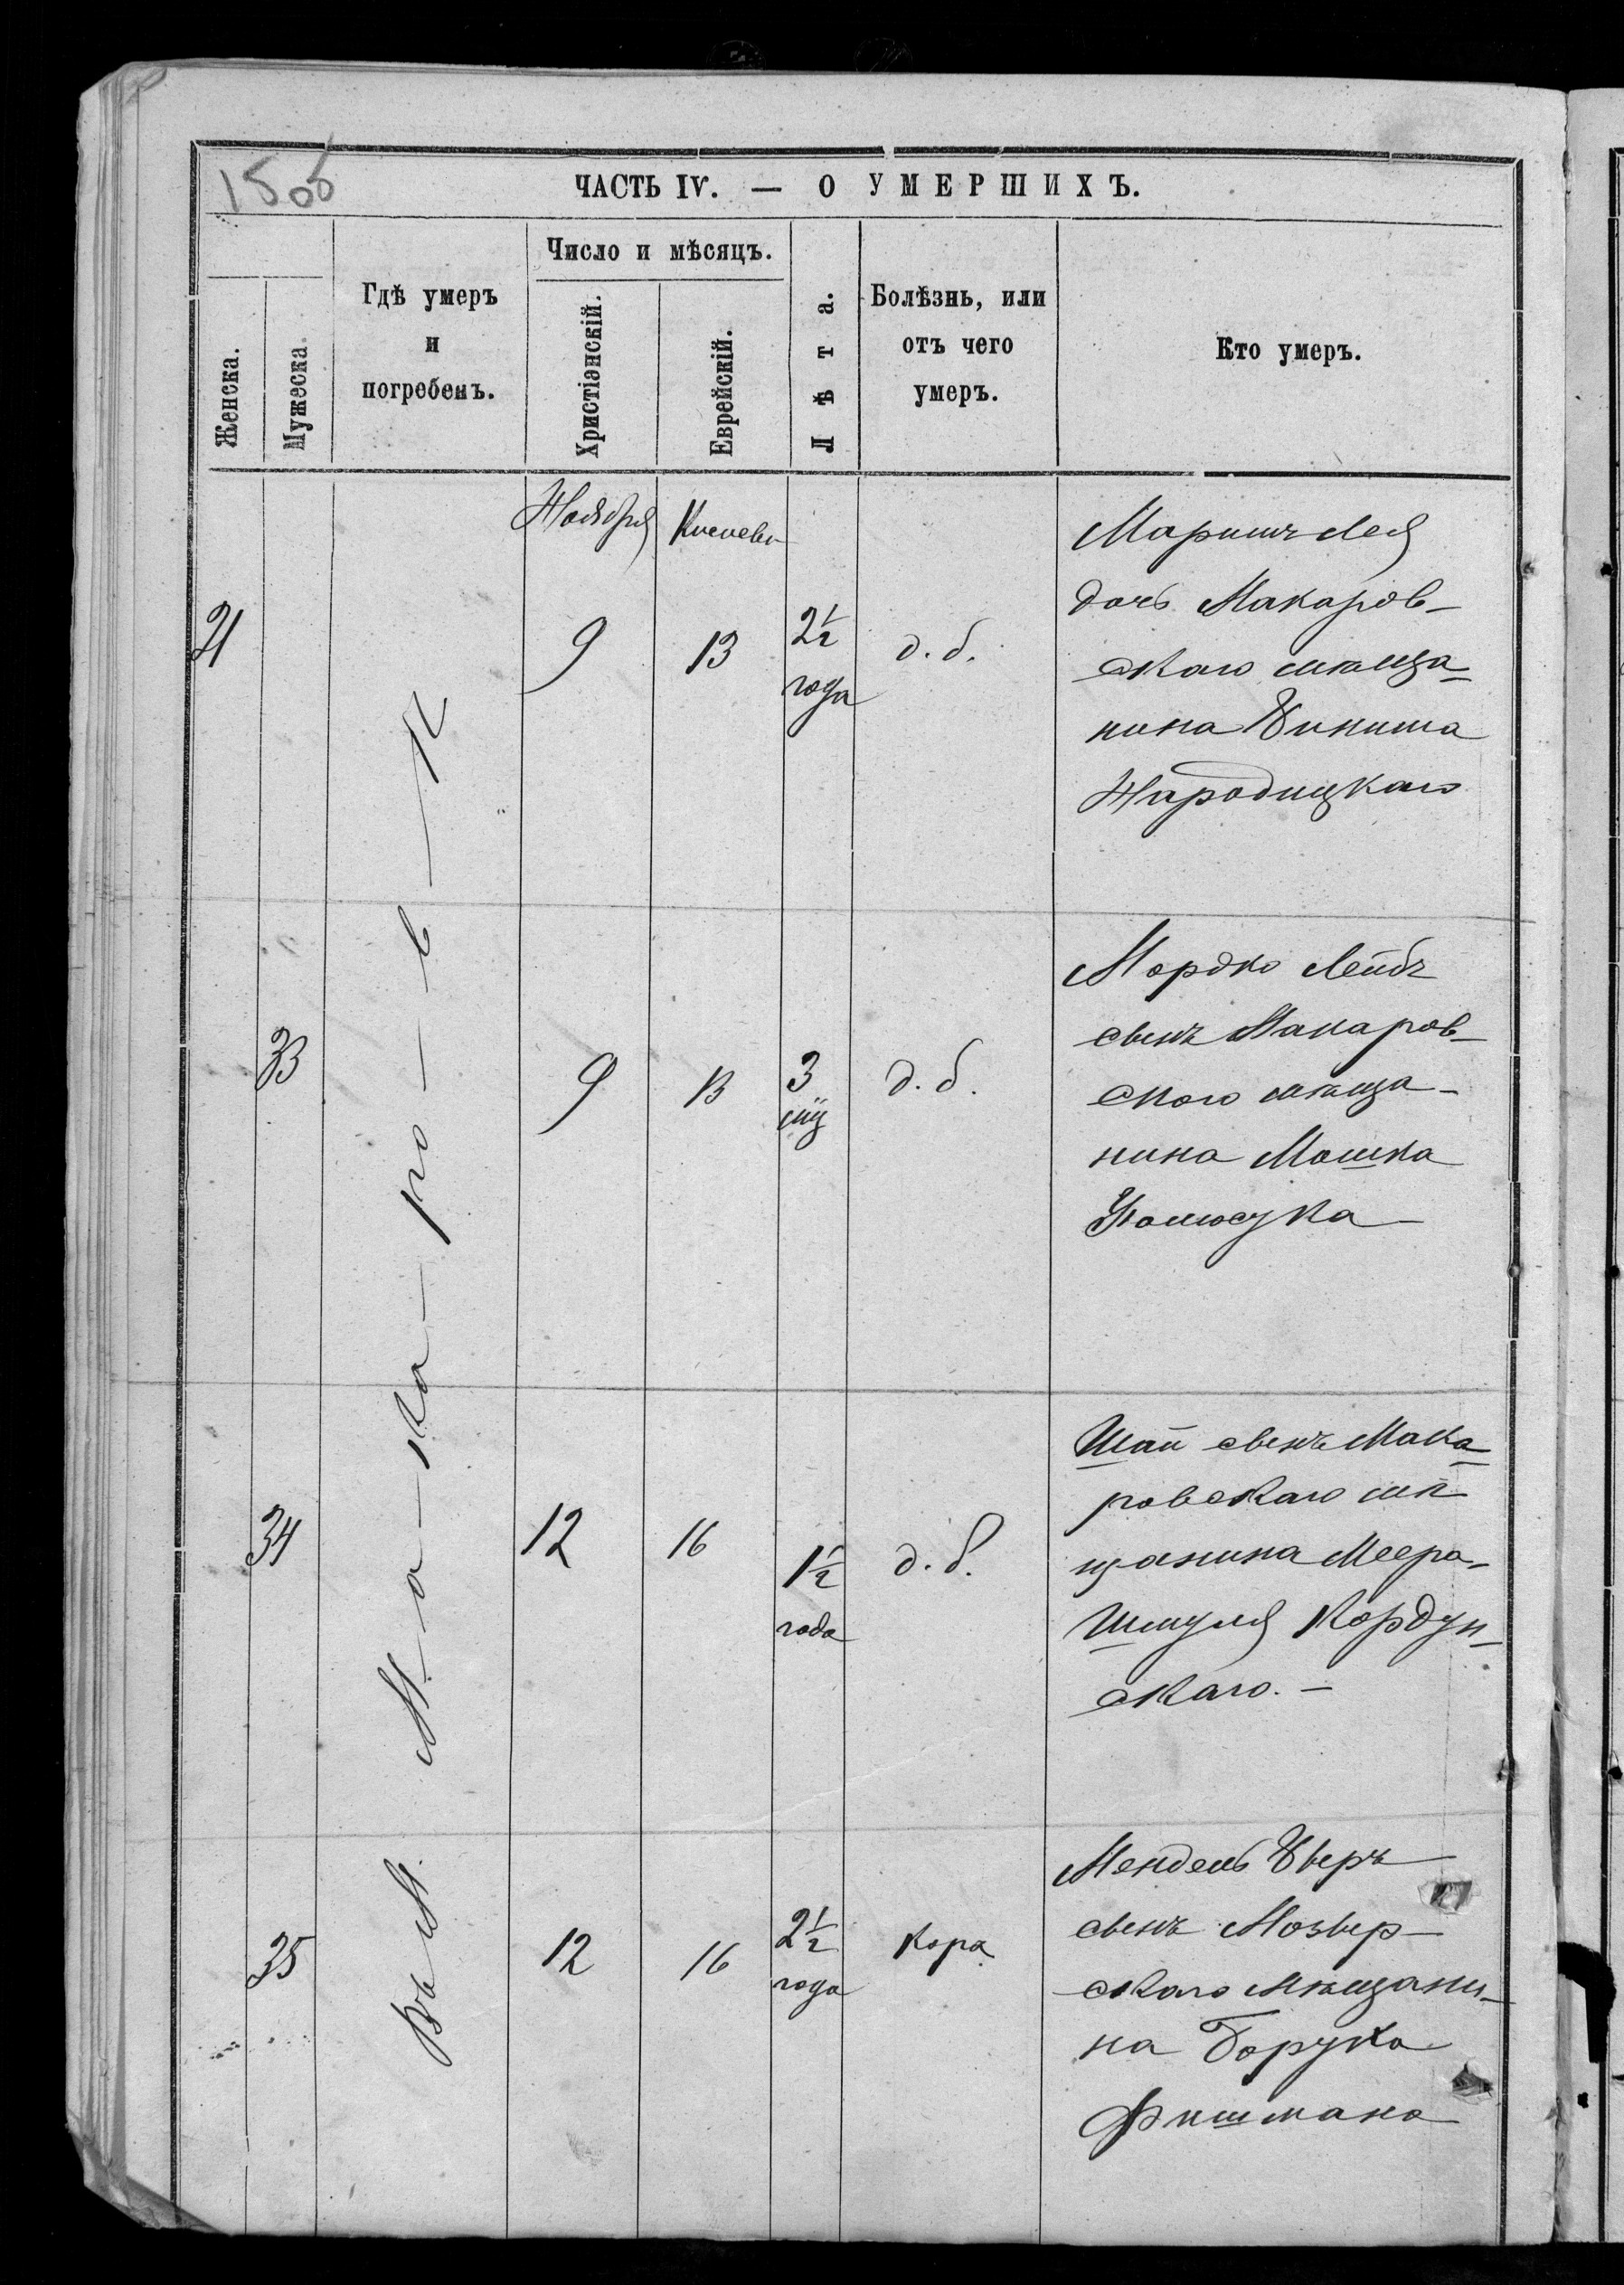 ЧАСТЬ IV. — О УМЕРШИХЪ.
Женска.
Мужеска.
Гдѣ умеръ
и
погребенъ.
Число и мѣсяцъ.
Христіанскій.
Еврейскій.
Лѣта.
Болѣзнь, или
отъ чего
умеръ.
Кто умеръ.
Въ М. Ма-ка-ро-в-ѣ
Ноября
21
9
13
2½
года
д. б.
Лея
дочь Макаров-
скаго мѣща-
нина
Народицкаго
33
9
13
3
д. б.
Мордко Лейбъ
сынъ Макаров-
скаго мѣща-
нина Мошка
34
12
16
1½
года
д. б.
Шай сынъ Мака-
ровскаго мѣ
щанина Меера-
Шмуля Кордун-
скаго. —
35
12
16
2½
года
Кора
Мендель
сынъ Мозыр-
скаго Мѣщани-
на Боруха
Фишмана